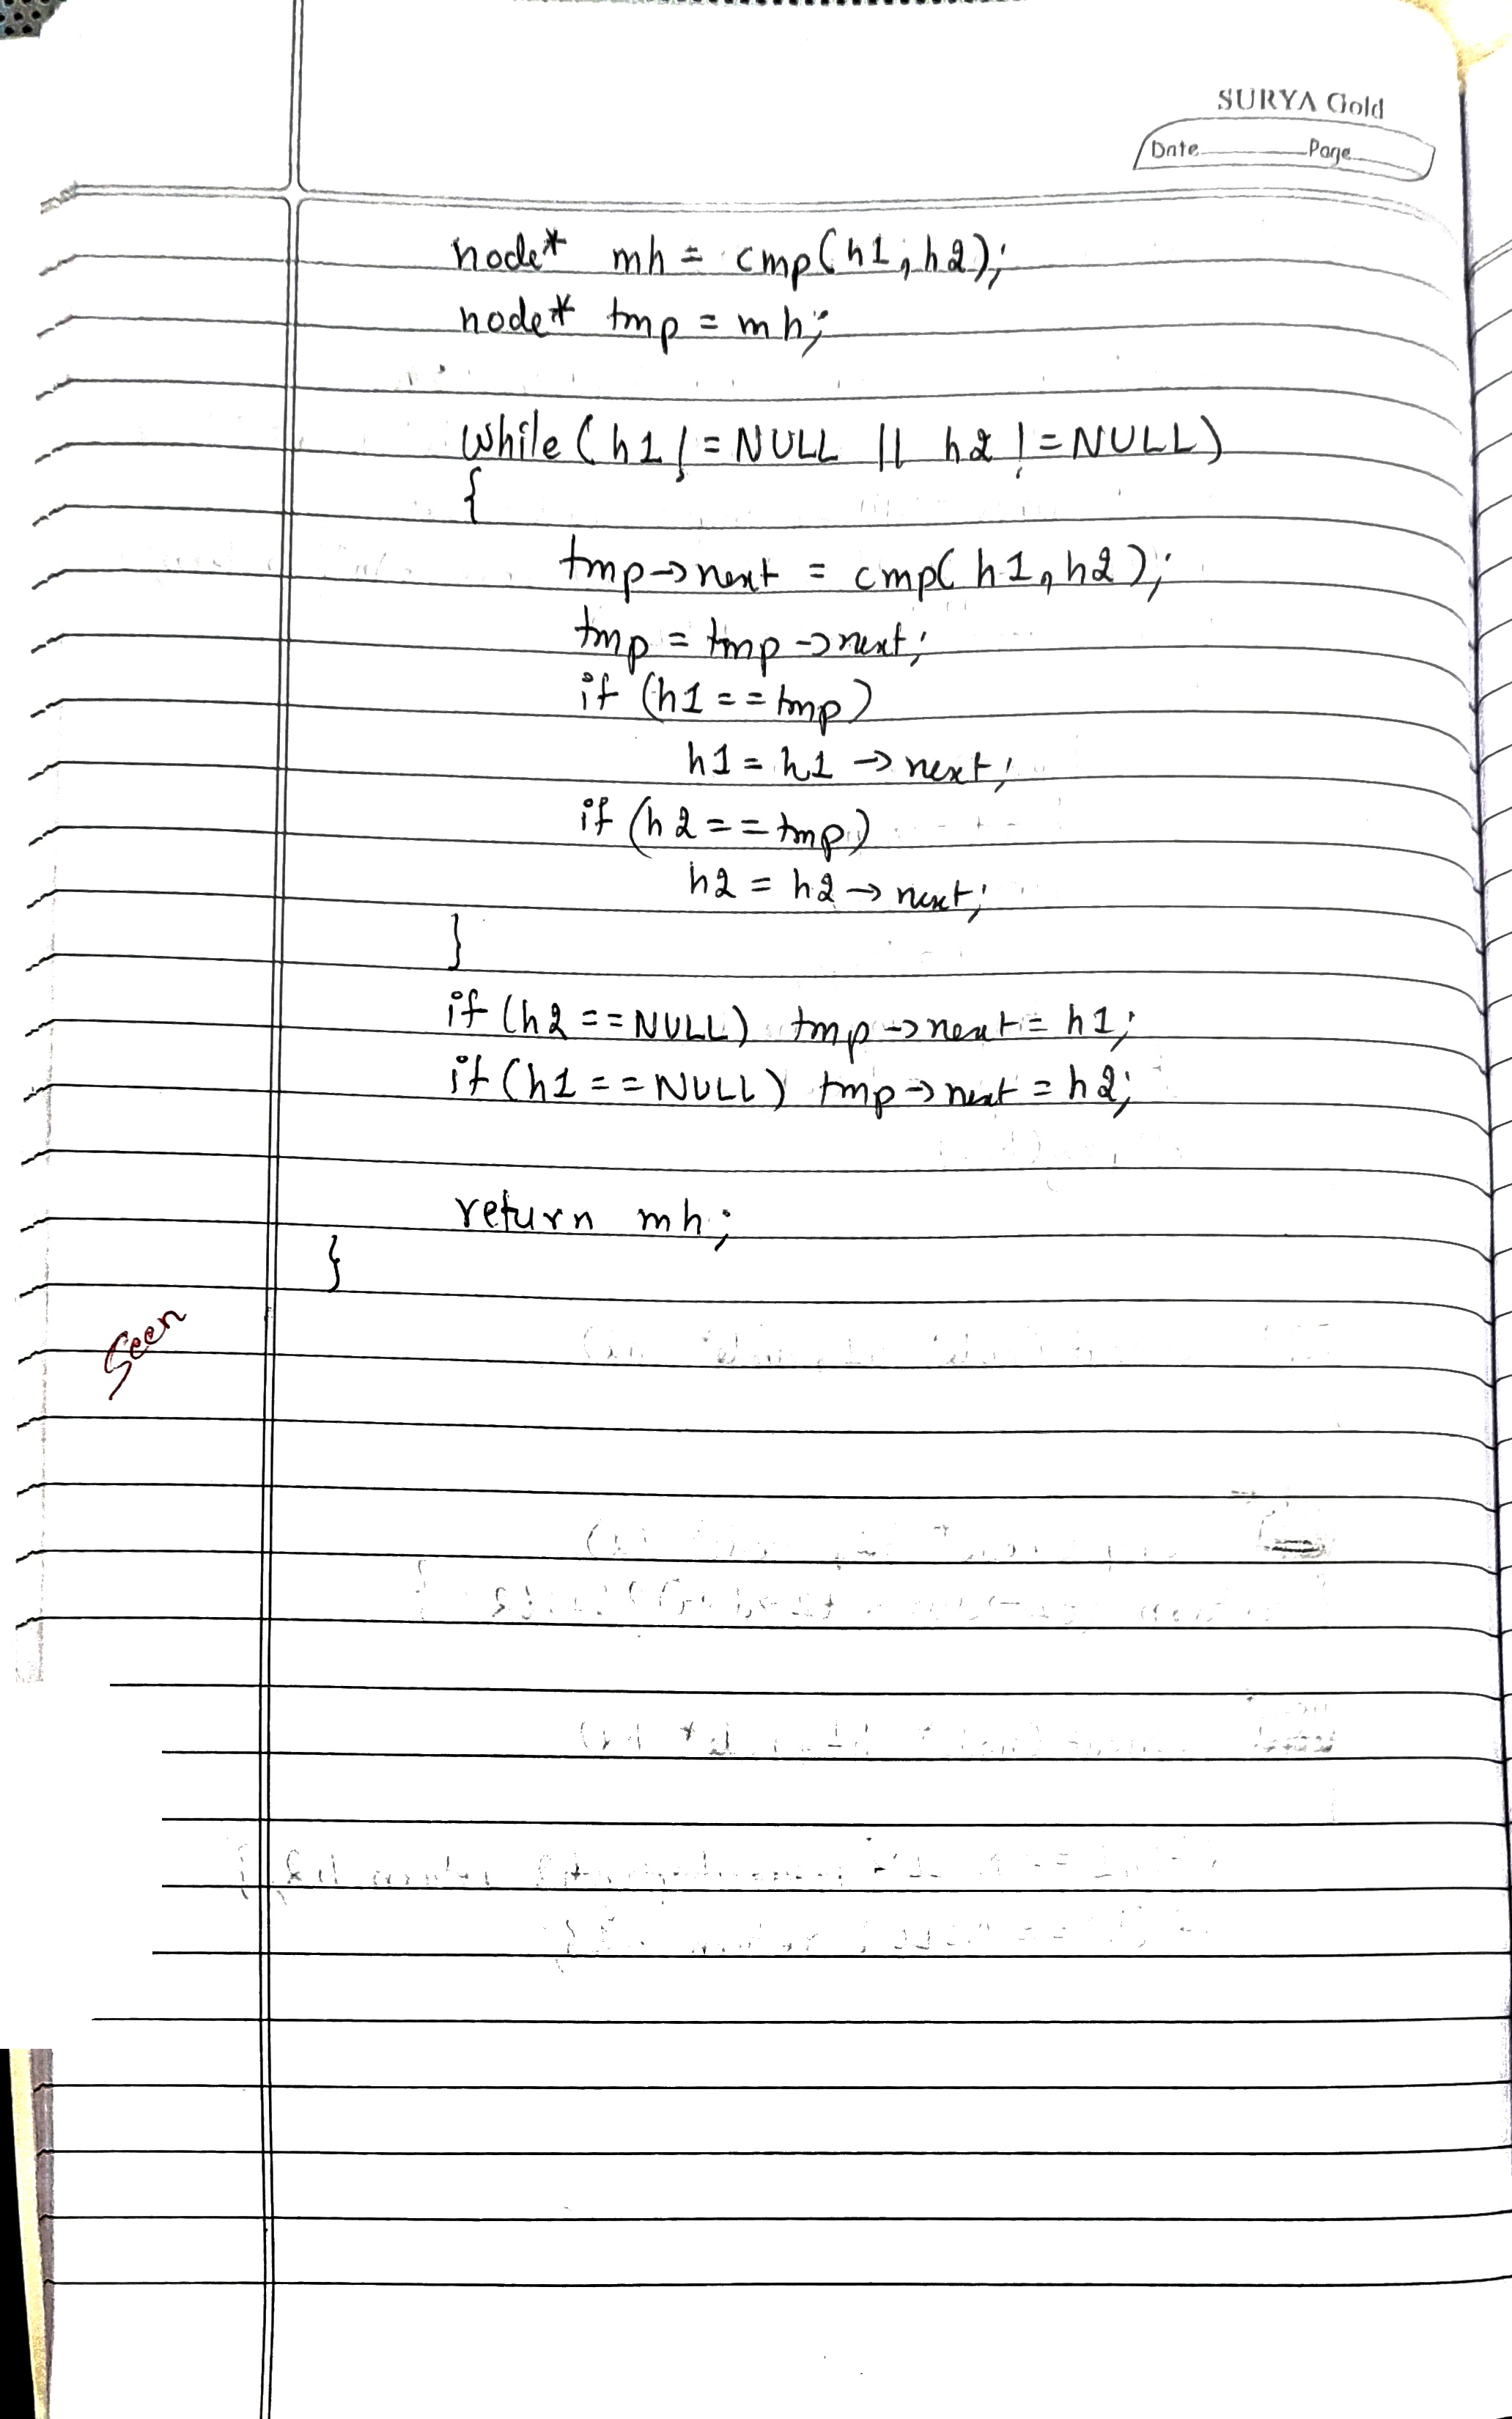 SURYA Gold
Date Page
node* mh = cmp(h1, h2);
node* tmp = mh;
while (h1 != NULL || h2 != NULL)
{
tmp->next = cmp(h1, h2);
tmp = tmp->next;
if (h1 == tmp)
h1 = h1->next;
if (h2 == tmp)
h2 = h2->next;
}
if (h2 == NULL) tmp->next = h1;
if (h1 == NULL) tmp->next = h2;
return mh;
}
Seen